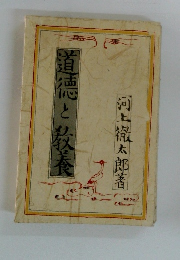 道徳と教養
河上徹太郎著